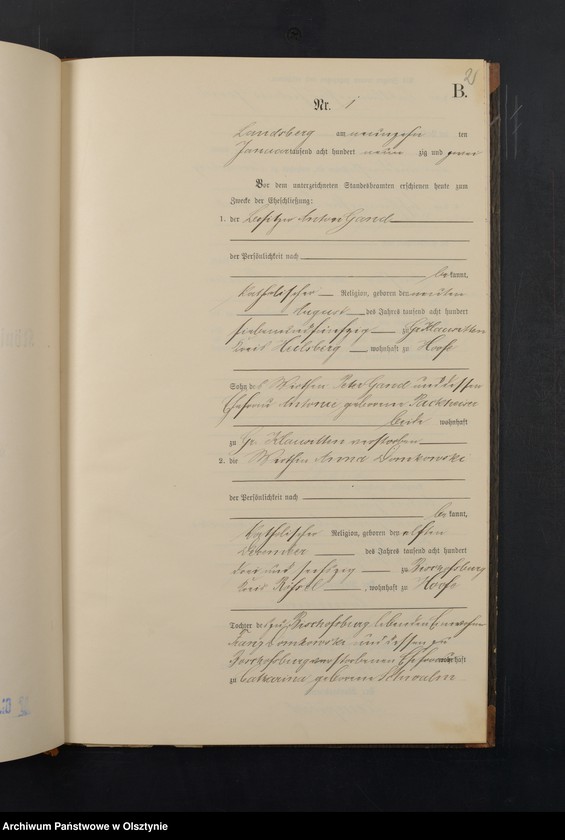 2
B.
Nr. 1
Landsberg am neunzehn ten
Januar tausend acht hundert neun zig und zwei
Vor dem unterzeichneten Standesbeamten erschienen heute zum
Zwecke der Eheschließung:
1. der Besitzer Anton Gand
der Persönlichkeit nach
be kannt,
katholischer Religion, geboren den neunten
August des Jahres tausend acht hundert
siebenundfünfzig zu Gr Klawitten
Kreis Heilsberg, wohnhaft zu Hoofe
Sohn des Wirthen Peter Gand und dessen
Ehefrau Antonie geborene
beide wohnhaft
zu Gr Klawitten verstorben
2. die Wirthin Anna Domkowski
der Persönlichkeit nach
be kannt,
katholischer Religion, geboren den elften
des Jahres tausend acht hundert
drei und sechszig zu Bischofsburg
Kreis Rössel, wohnhaft zu Hoofe
Tochter des zu Bischofsburg lebenden Einwohner
Franz Domkowski und dessen zu
Bischofsburg verstorbenen Ehefrau wohnhaft
zu Catharina geborene
Archiwum Państwowe w Olsztynie